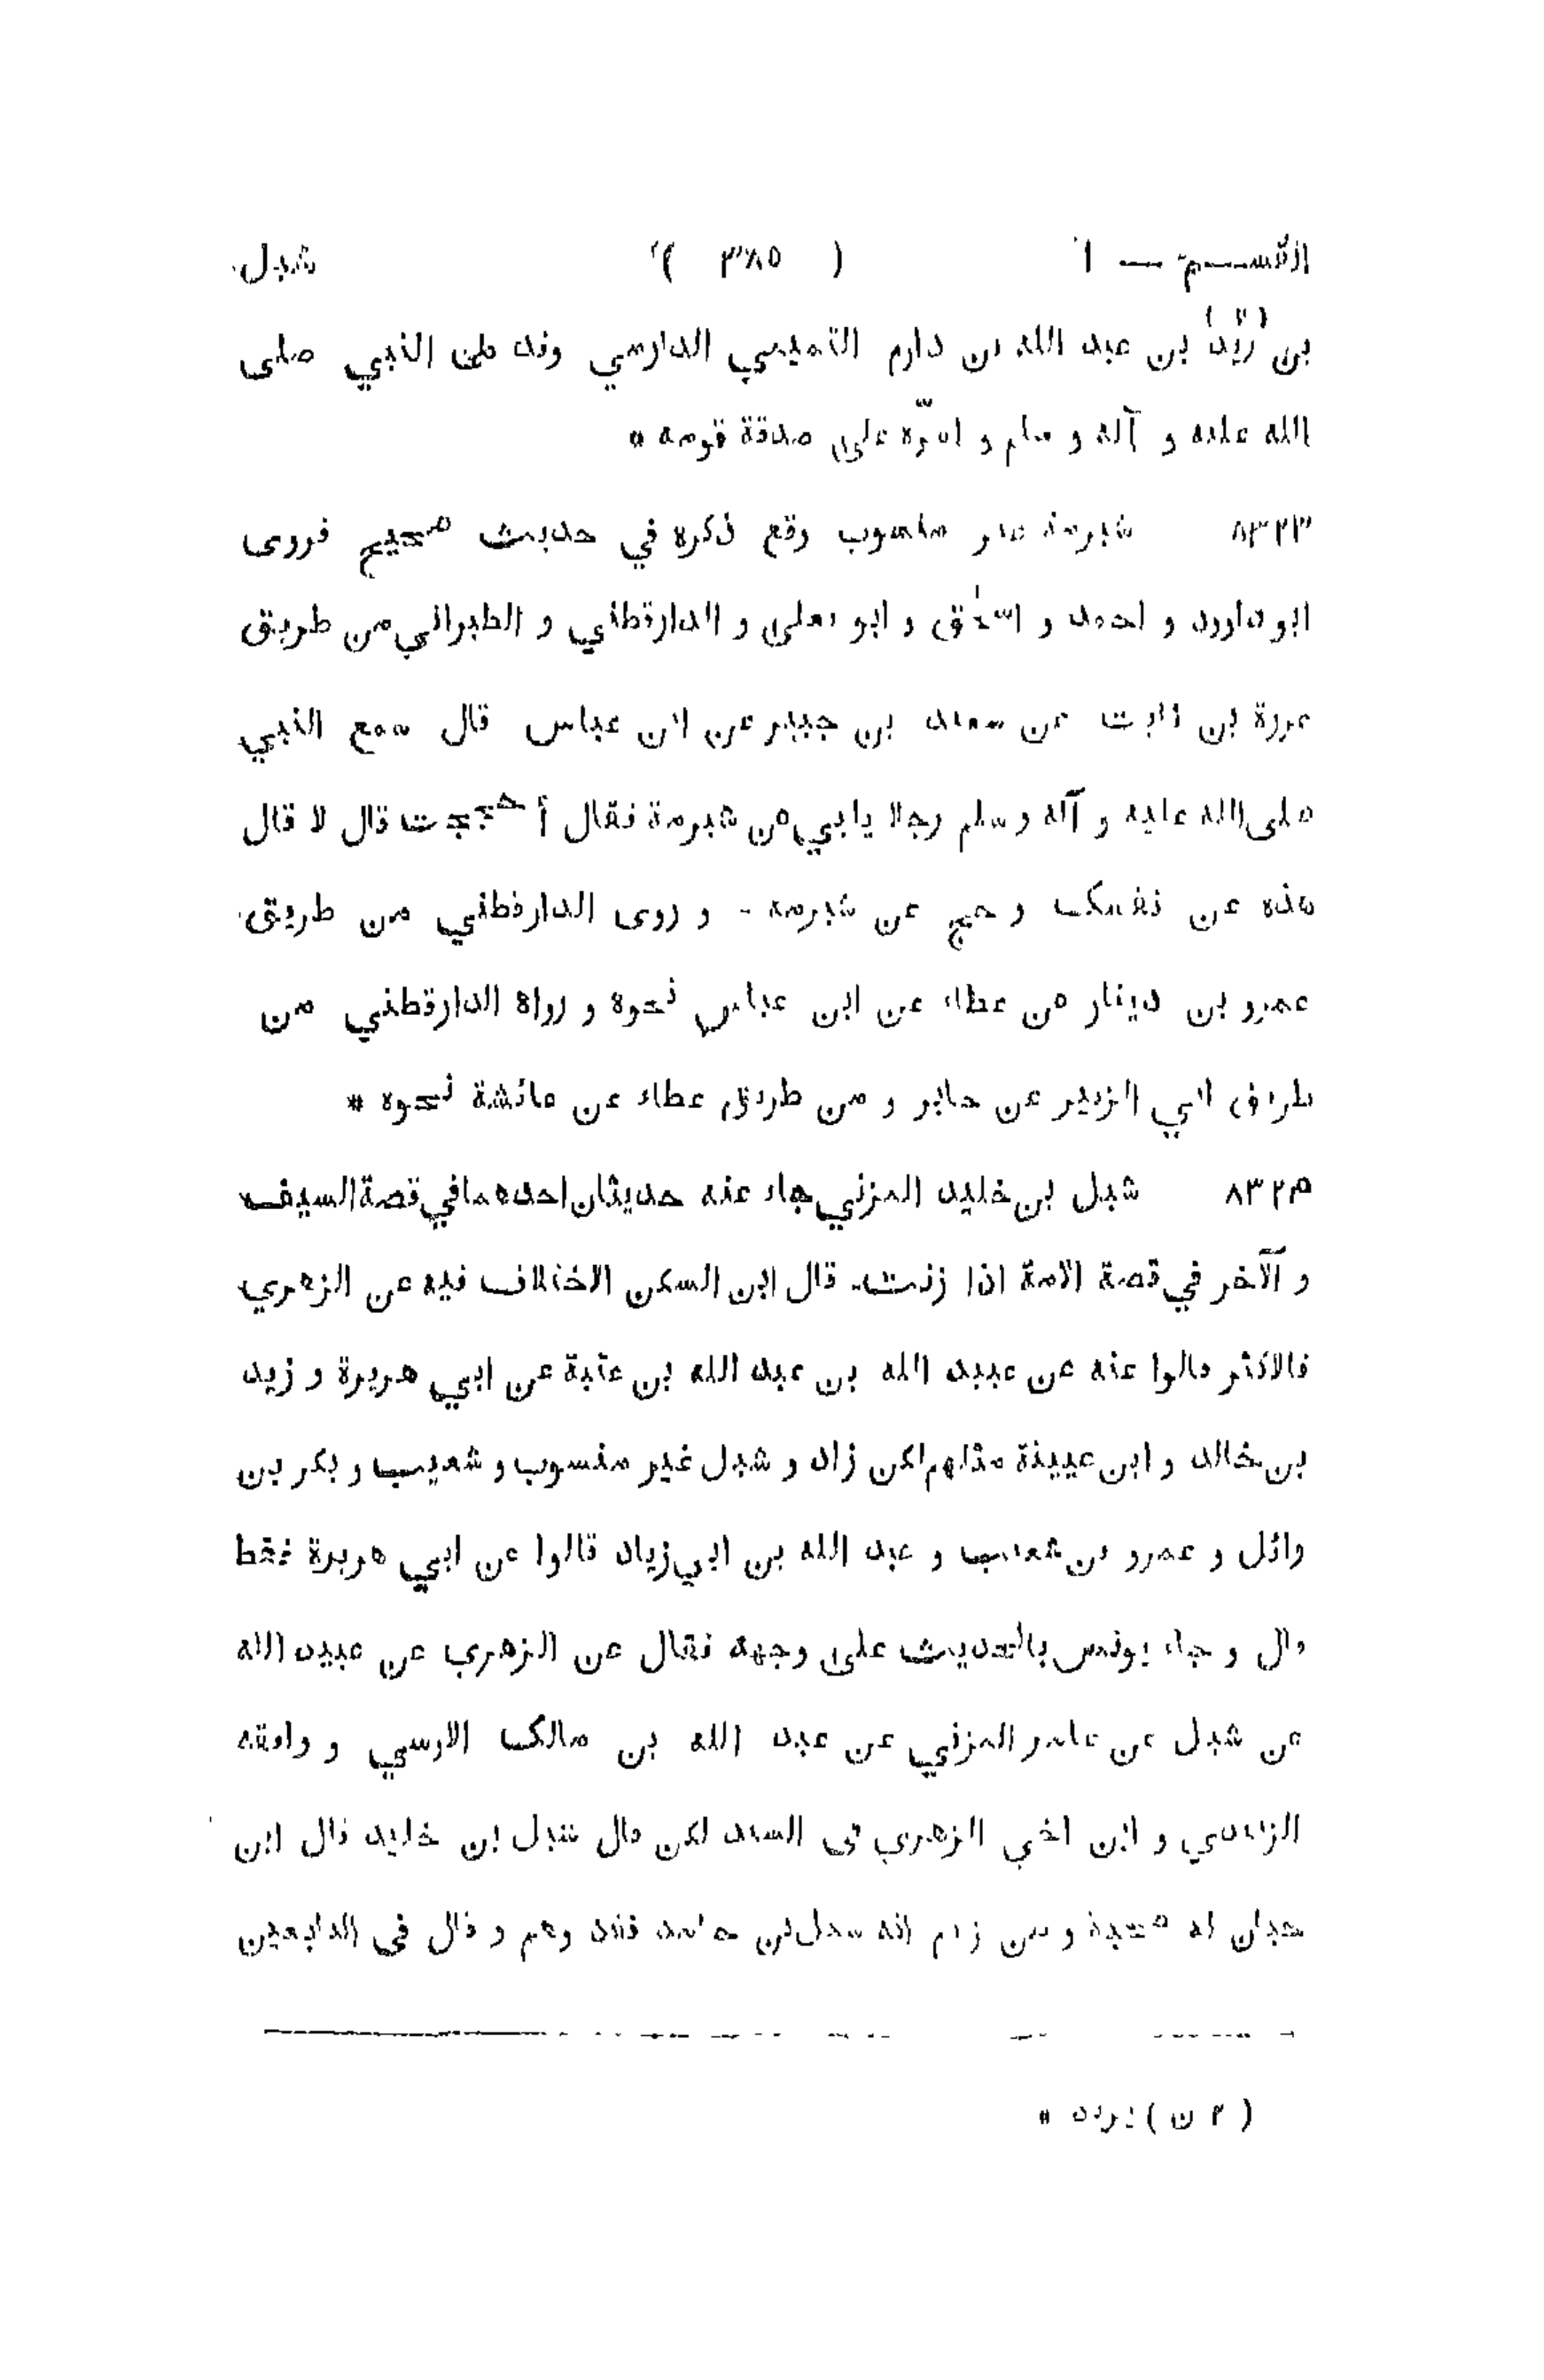 القسم — ١ ( ٣٨٥ ) شبل
بن زيد (٢) بن عبد الله بن دارم التميمي الدارمي وفد على النبي صلى
الله عليه و آله و سلم و امّره على صدقة قومه *
٨٣٢٣ شبرمة غير منسوب وقع ذكره في حديث صحيح فروى
ابو داوود و احمد و اسحٰق و ابو يعلى و الدارقطني و الطبراني من طريق
عزرة بن ثابت عن سعيد بن جبير عن ابن عباس قال سمع النبي
صلى الله عليه و آله و سلم رجلا يلبي عن شبرمة فقال أ حججت قال لا قال
هذه عن نفسك و حج عن شبرمه - و روى الدارقطني من طريق
عمرو بن دينار عن عطاء عن ابن عباس نحوه و رواه الدارقطني من
طريق ابي الزبير عن جابر و من طريق عطاء عن عائشة نحوه *
٨٣٢٤ شبل بن خليد المزني جاء عنه حديثان احدهما في قصة السيف
و آلآخر في قصة الامة اذا زنت. قال ابن السكن الاختلاف فيه عن الزهري
فالاكثر قالوا عنه عن عبيد الله بن عبد الله بن عتبة عن ابي هريرة و زيد
بن خالد و ابن عيينة مثلهم لكن زاد و شبل غير منسوب و شعيب و بكر بن
وائل و عمرو بن شعيب و عبد الله بن ابي زياد قالوا عن ابي هريرة فقط
قال و جاء يونس بالحديث على وجهه فقال عن الزهري عن عبيد الله
عن شبل عن عامر المزني عن عبد الله بن مالك الاوسي و وافقه
الزبيدي و ابن اخي الزهري في السند لكن قال شبل بن خليد قال ابن
حبان له صحبة و من زعم انه شبل بن حامد فقد وهم و قال في التابعين
( ٢ ن ) يزيد *